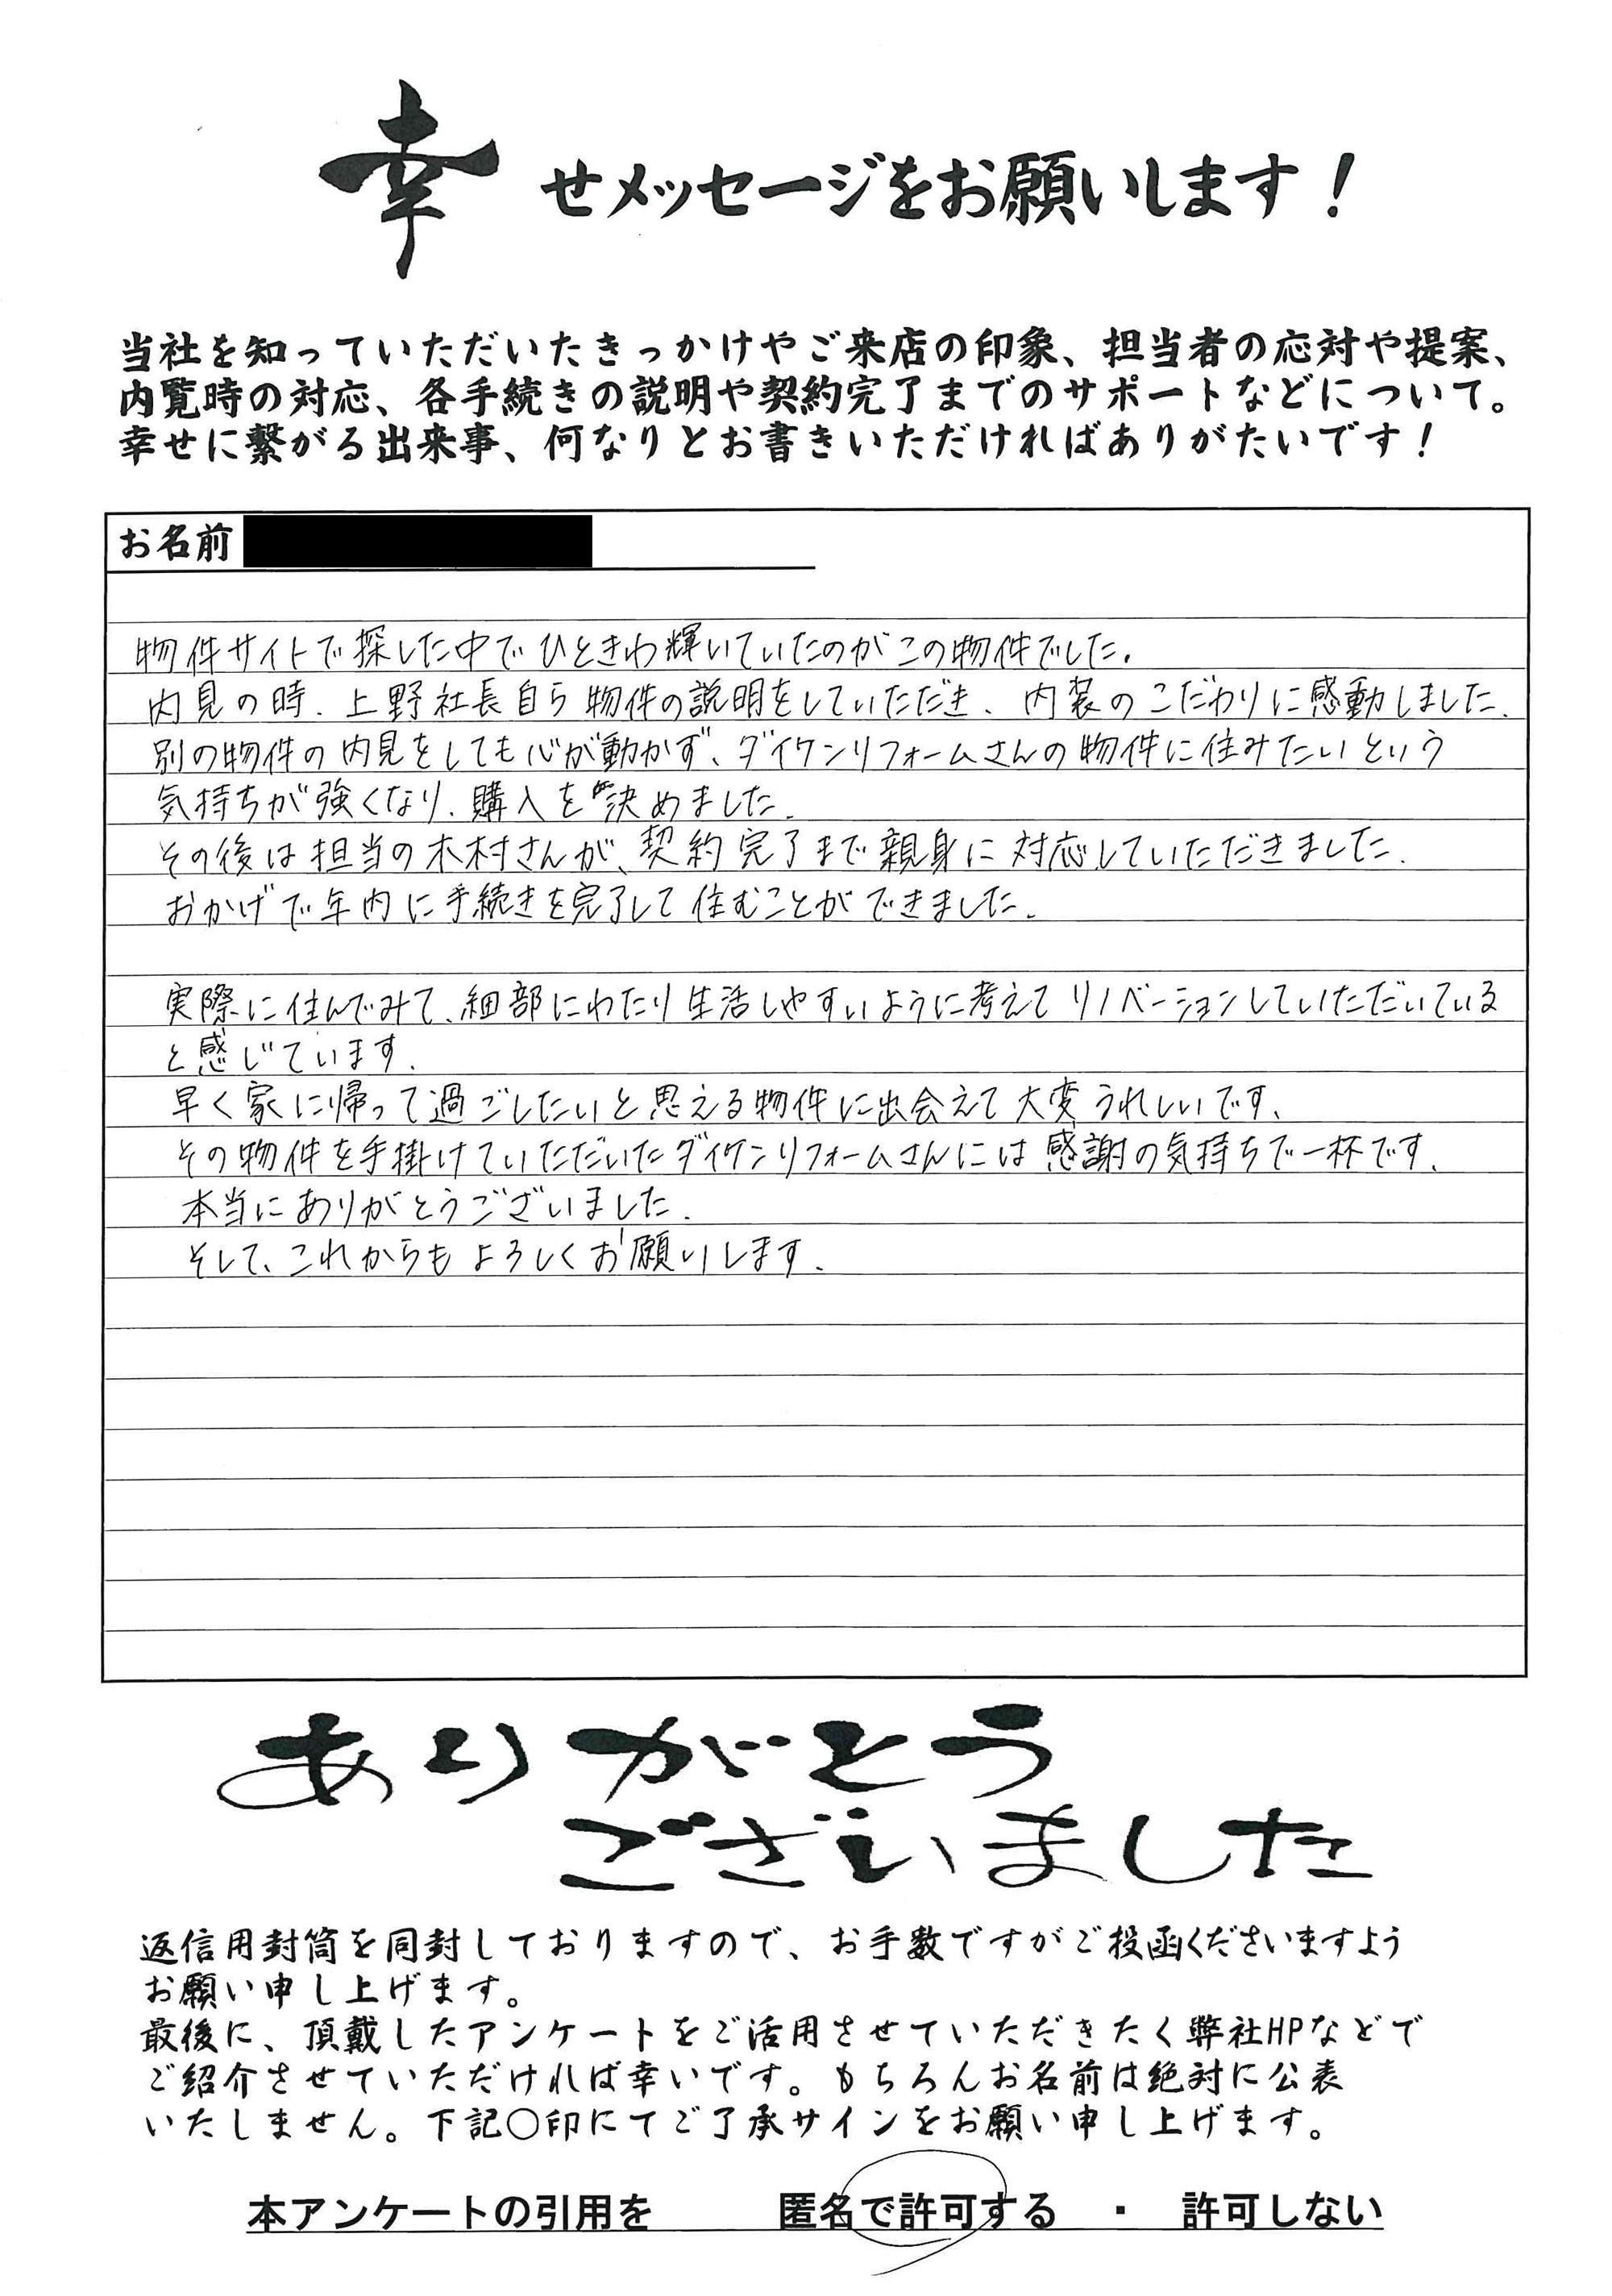 幸せメッセージをお願いします！
当社を知っていただいたきっかけやご来店の印象、担当者の応対や提案、
内覧時の対応、各手続きの説明や契約完了までのサポートなどについて。
幸せに繋がる出来事、何なりとお書きいただければありがたいです！
お名前
物件サイトで探した中でひときわ輝いていたのがこの物件でした。
内見の時、上野社長自ら物件の説明をしていただき、内装のこだわりに感動しました。
別の物件の内見をしても心が動かず、ダイケンリフォームさんの物件に住みたいという
気持ちが強くなり、購入を決めました。
その後は担当の木村さんが、契約完了まで親身に対応していただきました。
おかげで年内に手続きを完了して住むことができました。
実際に住んでみて、細部にわたり生活しやすいように考えてリノベーションしていただいている
と感じています。
早く家に帰って過ごしたいと思える物件に出会えて大変うれしいです。
その物件を手掛けていただいたダイケンリフォームさんには感謝の気持ちで一杯です。
本当にありがとうございました。
そして、これからもよろしくお願いします。
ありがとう
ございました
返信用封筒を同封しておりますので、お手数ですがご投函くださいますよう
お願い申し上げます。
最後に、頂戴したアンケートをご活用させていただきたく弊社HPなどで
ご紹介させていただければ幸いです。もちろんお名前は絶対に公表
いたしません。下記〇印にてご了承サインをお願い申し上げます。
本アンケートの引用を　匿名で許可する　・　許可しない